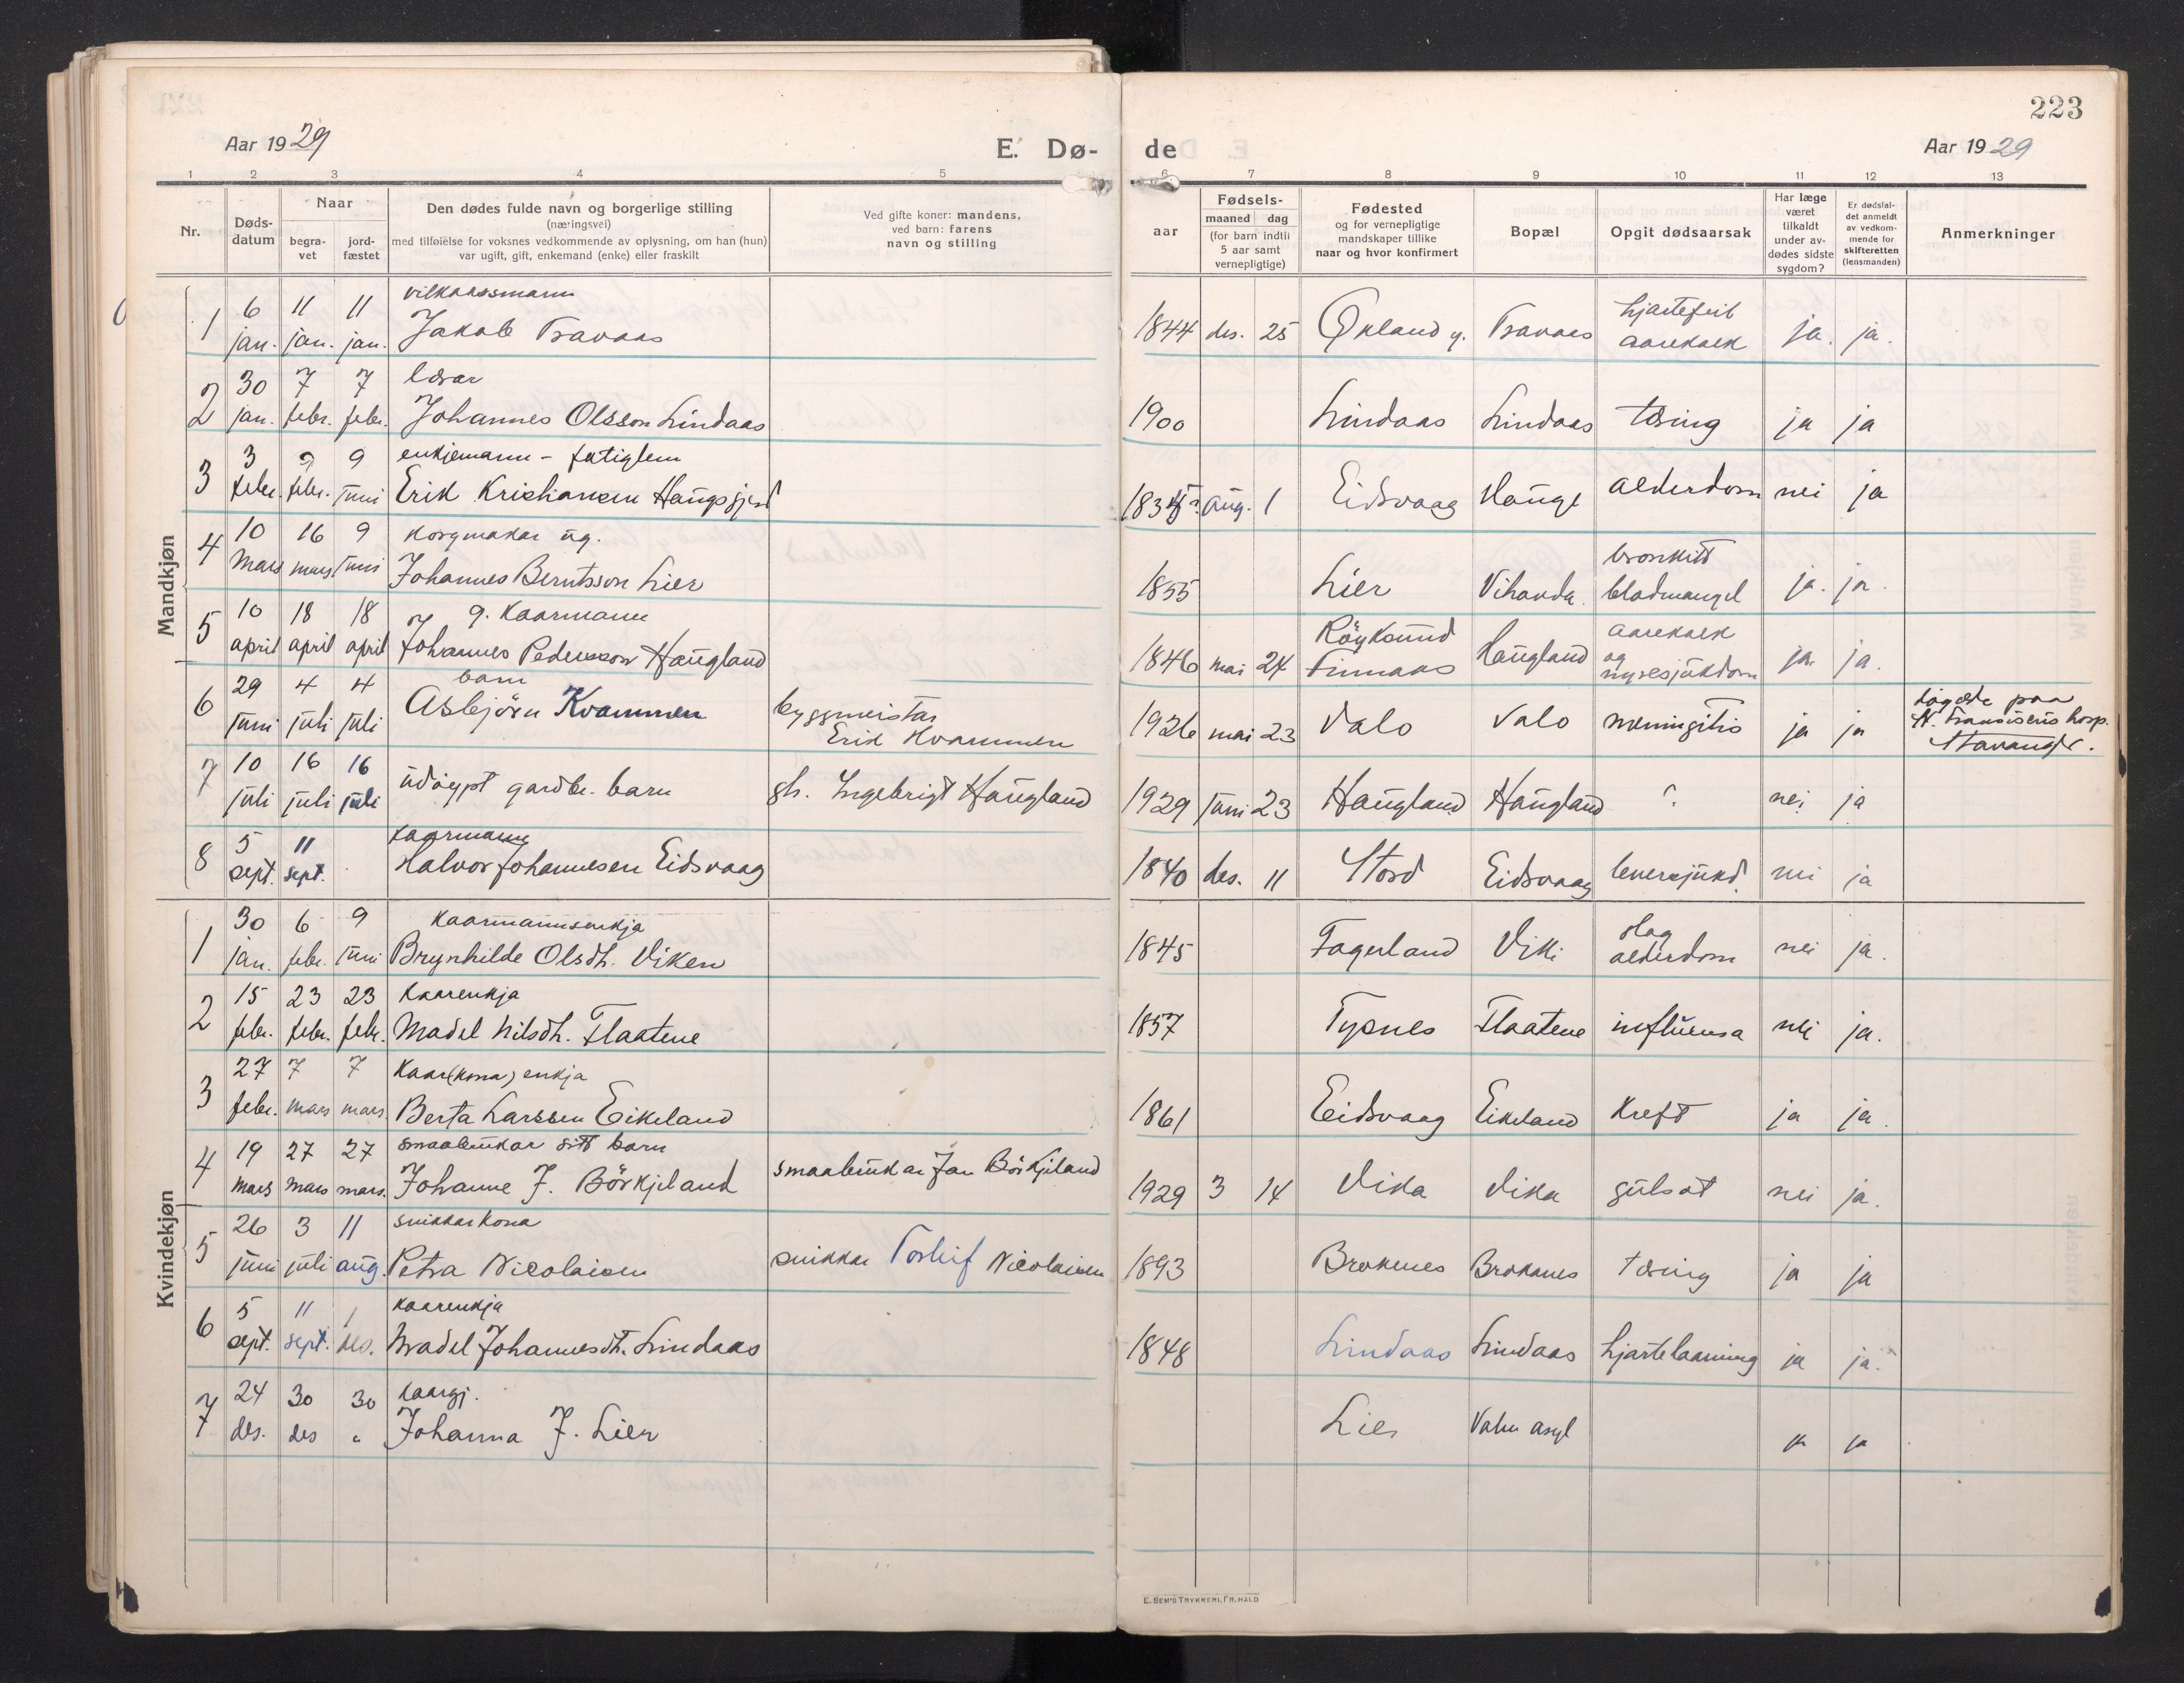 223
Aar 1929
E. Dø-
de
Aar 1929
1 2 3 4 5 6 7 8 9 10 11 12 13
Nr.
Døds-
datum
Naar
begra-
vet
jord-
fæstet
Den dødes fulde navn og borgerlige stilling
(næringsvei)
med tilføielse for voksnes vedkommende av oplysning, om han (hun)
var ugift, gift, enkemand (enke) eller fraskilt
Ved gifte koner: mandens,
ved barn: farens
navn og stilling
aar
Fødsels-
maaned dag
(for barn indtil
5 aar samt
vernepligtige)
Fødested
og for vernepligtige
mandskaper tillike
naar og hvor konfirmert
Bopæl
Opgit dødsaarsak
Har læge
været
tilkaldt
under av-
dødes sidste
sygdom?
Er dødsfal-
det anmeldt
av vedkom-
mende for
skifteretten
(lensmanden)
Anmerkninger
Mandkjøn
vilkaarsmann
1 6 jan. 11 jan. 11 jan. Jakob Travaas 1844 des. 25 Økland Travaas hjartefeil
aarekalk ja. ja.
2 30 jan. 7 febr. 7 febr. Johannes Olsson Lindaas 1900 Lindaas Lindaas tæring ja ja
enkjemann - fatiglem
3 3 febr. 9 febr. 9 juni Erik Kristiansen Haugsgjerd aug. 1 Eidsvaag Hauge alderdom nei ja
korgmakar ug.
4 10 mars 16 mars 9 juni Johannes Berntsson Lier 1855 Lier bronkitt
blodmangel ja. ja.
g. kaarmann
5 10 april 18 april 18 april Johannes Pedersson Haugland 1846 mai 24 Röyksund
Finnaas Haugland aarekalk
og
nyresjukdom ja. ja.
barn
6 29 juni 4 juli 4 juli Asbjörn Kvammen byggmeistar
Erik Kvammen 1926 mai 23 Valo Valo meningitis ja ja
paa
St. Fransiscus hosp.
Stavanger.
7 10 juli 16 juli 16 juli udöypt gardbr. barn gb. Ingebrigt Haugland 1929 juni 23 Haugland Haugland ? nei ja
kaarmann
8 5 sept. 11 sept. Halvor Johannesen Eidsvaag 1840 des. 11 Stord Eidsvaag leversjukd. nei ja
Kvindekjøn
kaarmannsenkja
1 30 jan. 6 febr. 9 juni Brynhilde Olsdt. Viken 1845 Fagerland Vik slag
alderdom nei ja.
kaarenkja
2 15 febr. 23 febr. 23 febr. Madel Nilsdt. Flaatene 1857 Typnes Flaatene influensa nei ja.
kaar(kona) enkja
3 27 febr. 7 mars 7 mars Berta Larssen Eikeland 1861 Eidsvaag Eikeland kreft ja ja.
smaabrukar sitt barn
4 19 mars 27 mars 27 mars. Johanne J. Börkjeland smaabrukar Jan Börkjeland 1929 3 14 Vika Vika gulsot nei ja.
snikkarkona
5 26 juni 3 juli 11 aug. Petra Nicolaisen snikkar Torleif Nicolaisen 1893 Brokenes Brokanes tæring ja ja
kaarenkja
6 5 sept. 11 sept. 1 des. Madel Johannesdt. Lindaas 1848 Lindaas Lindaas hjartelaaming ja ja.
kaargj.
7 24 des. 30 des 30 " Johanna J. Lier Lier Valen asyl ja ja
E. SEM'S TRYKKERI, FR.HALD